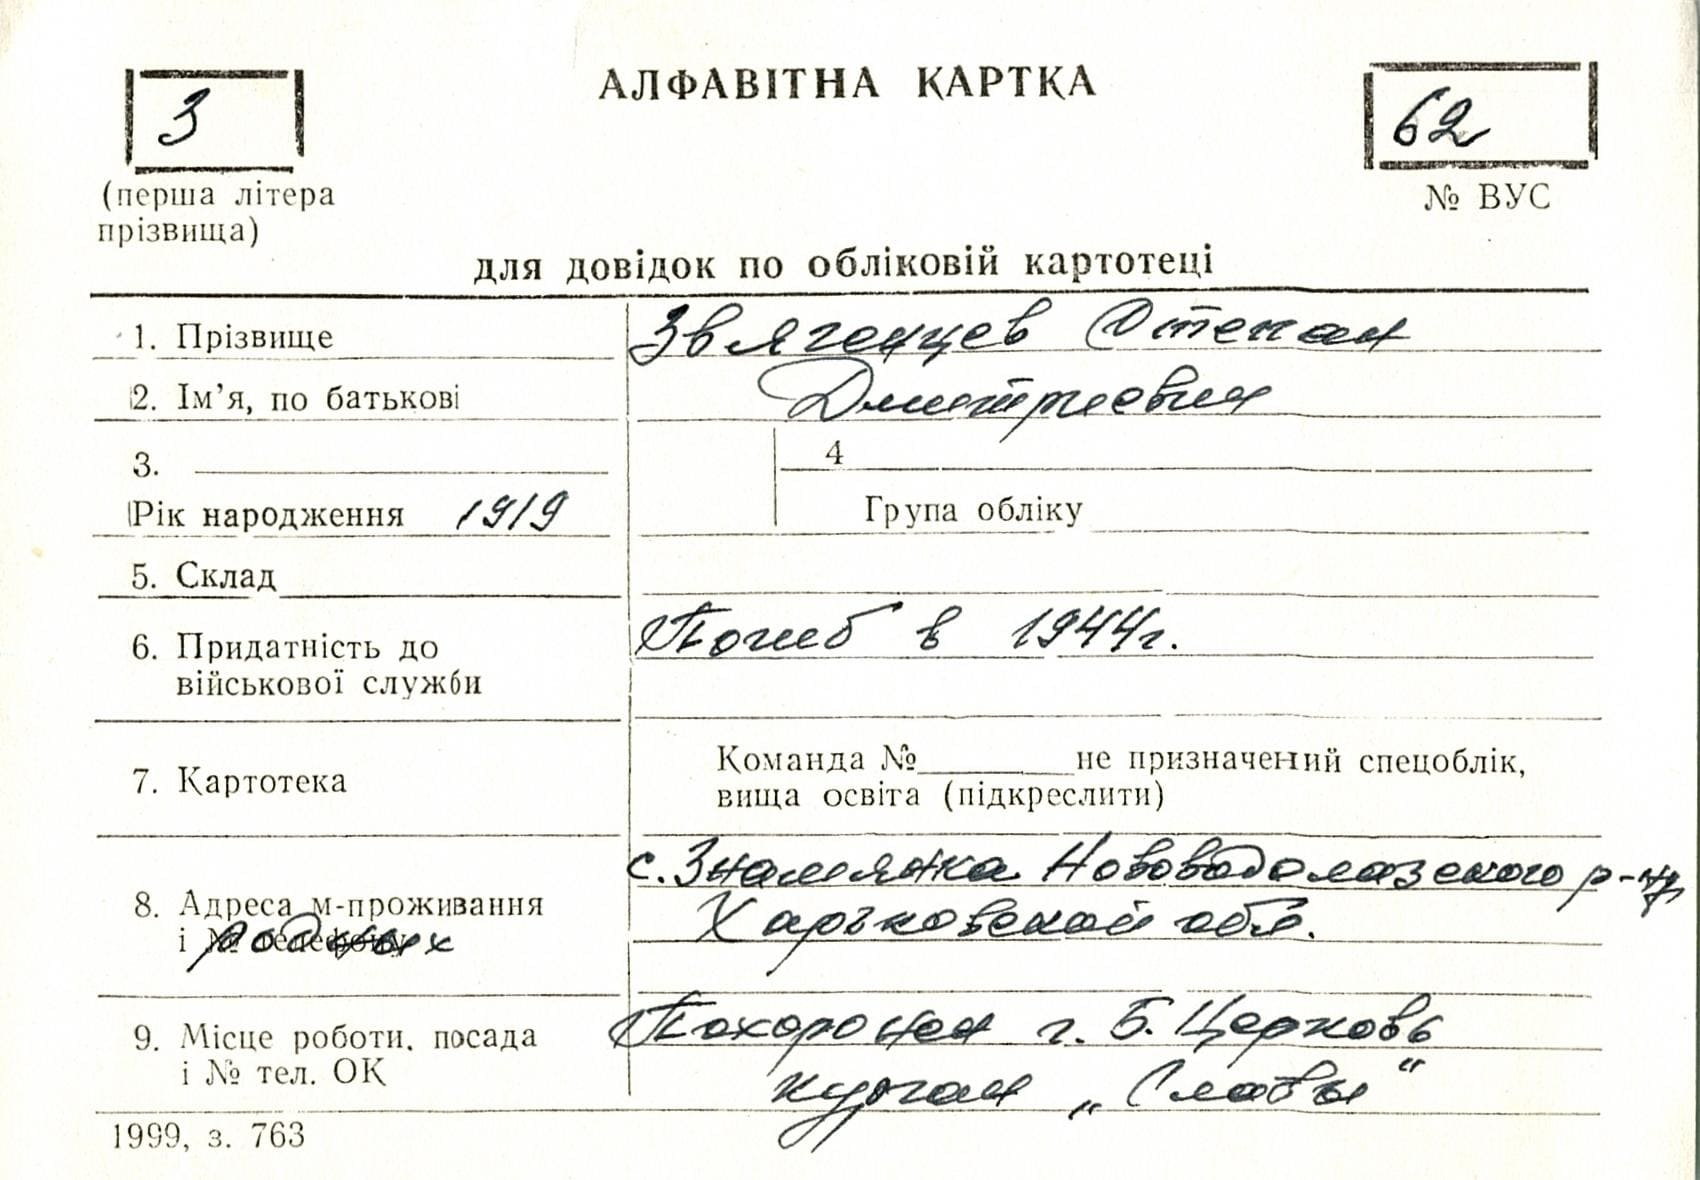 АЛФАВІТНА КАРТКА
З
62
(перша літера
прізвища)
№ ВУС
для довідок по обліковій картотеці
1. Прізвище Звягенцев Степан
2. Ім’я, по батькові Дмитриевич
3.
4
Рік народження 1919
Група обліку
5. Склад
6. Придатність до Погиб в 1944г.
військової служби
7. Картотека
Команда № не призначений спецоблік,
вища освіта (підкреслити)
с. Знамянка Нововодолазского р-на
8. Адреса м-проживання Харьковской обл.
і № телефону родных
9. Місце роботи, посада Похоронен г. Б. Церковь
і № тел. ОК курган „Славы“
1999, з. 763